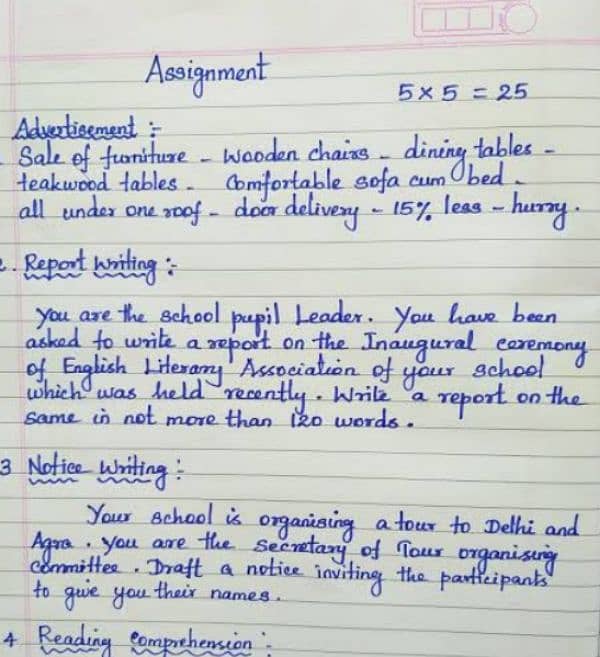 Assignment
5 x 5 = 25
Advertisement :-
Sale of furniture - wooden chairs - dining tables -
teakwood tables - Comfortable sofa cum bed -
all under one roof - door delivery - 15% less - hurry.
2. Report Writing :-
You are the school pupil Leader. You have been
asked to write a report on the Inaugural ceremony
of English Literary Association of your school
which was held recently. Write a report on the
same in not more than 120 words.
3 Notice Writing :-
Your school is organising a tour to Delhi and
Agra. You are the secretary of Tour organising
committee. Draft a notice inviting the participants
to give you their names.
4 Reading Comprehension :-